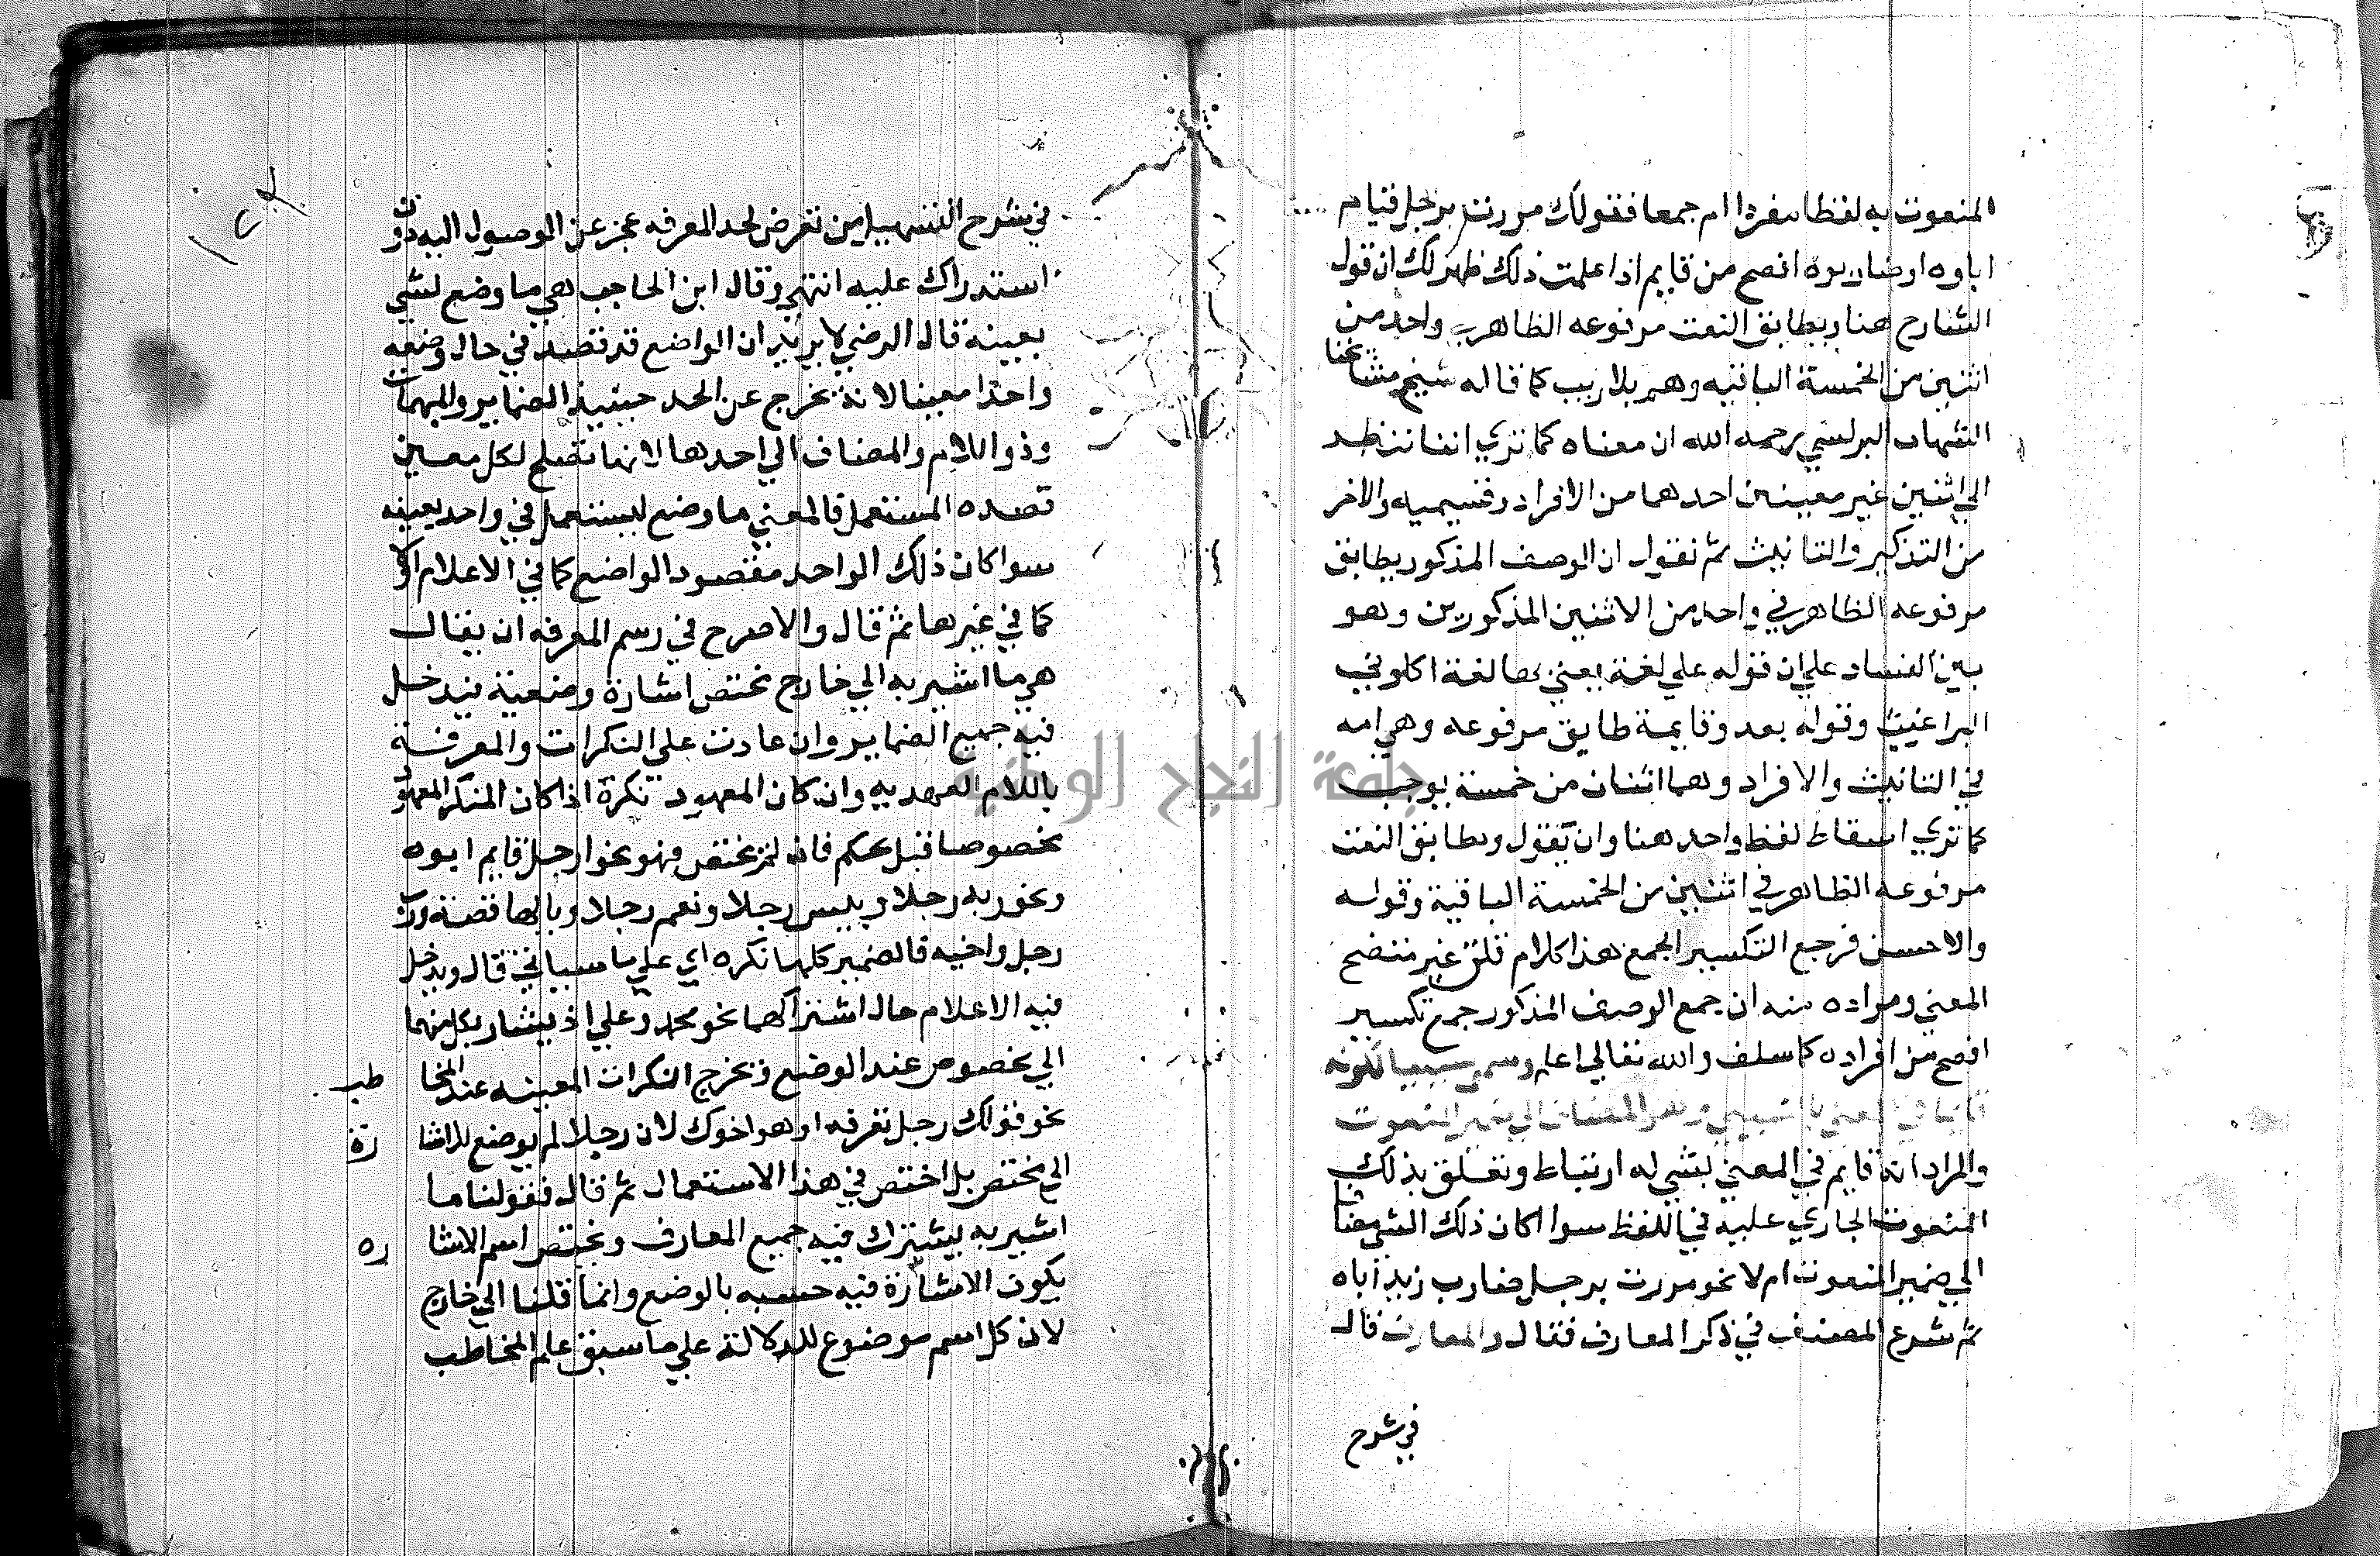 المنعوت به لفظا مفردا ام جمعا فقولك مررت برجل قيام
اباوه او ضاربوه افصح من قايم اذا علمت ذلك ظهر لك ان قول
الشارح هنا ويطابق النعت مرفوعه الظاهر في واحد من
اثنين من الخمسة الباقيه وهم بلا ريب كما قاله شيخ مشايخنا
الشهاب البرلسي رحمه الله ان معناه كما تري اننا ننظر
الي اثنين غير معينين احدهما من الافراد وقسيميه والاخر
من التذكير والتانيث ثم نقول ان الوصف المذكور يطابق
مرفوعه الظاهر في واحد من الاثنين المذكورين وهو
بين الفساد علي ان قوله علي لغة يعني كما لغة اكلوني
البراغيث وقوله بعد وقايمة طابق مرفوعه وهي امه
في التانيث والافراد وهما اثنان من خمسة يوجب
كما تري اسقاط لفظ واحد هنا وان يقول ويطابق النعت
مرفوعه الظاهر في اثنين من الخمسة الباقية وقوله
والاحسن فرجع التكسير الجمع هذا كلام قلق غير متضح
المعني ومراده منه ان جمع الوصف المذكور جمع تكسير
افصح من افراده كما سلف والله تعالي اعلم وسمي سببيا لكونه
قايما في المعني بالسببي وهو المضاف الي ضمير المنعوت
والمراد انه قايم في المعني بشي له ارتباط وتعلق بذلك
المنعوت الجاري عليه في اللفظ سوا اكان ذلك الشي مضافا
الي ضمير المنعوت ام لا نحو مررت برجل ضارب زيد اباه
ثم شرع المصنف في ذكر المعارف فقال والمعارف قال
في شرح
في شرح التسهيل من تعرض لحد المعرفه عجز عن الوصول اليه دون
استدراك عليه انتهي وقال ابن الحاجب هي ما وضع لشي
بعينه قال الرضي لا يريد ان الواضع قد قصد في حال وضعه
واحدا معينا لانه يخرج عن الحد حينيذ الضماير والمبهمات
وذو اللام والمضاف الي احدها لانها تصلح لكل معين
قصده المستعمل فالمعني ما وضع ليستعمل في واحد بعينه
سوا كان ذلك الواحد مقصود الواضع كما في الاعلام او لا
كما في غيرها ثم قال والاصرح في رسم المعرفه ان يقال
هي ما اشير به الي خارج مختص اشارة وضعية فيدخل
فيه جميع الضماير وان عادت علي النكرات والمعرفة
باللام العهديه وان كان المعهود نكرة اذا كان المنكر المعهود
مخصوصا قبل بحكم فان لم يختص فهو نحو ارجل قايم ابوه
ونحو ربه رجلا وبيس رجلا ونعم رجلا ويا لها قصة ورب
رجل واخيه فالضمير كلها نكره اي علي ما سياتي قال ويدخل
فيه الاعلام حال اشتراكها نحو محمد وعلي اذ يشار بكل منهما
الي مخصوص عند الوضع ويخرج النكرات المعينه عند المخا طب
نحو قولك رجل تعرفه او هو اخوك لان رجلا لم يوضع للاشا رة
الي مختص بل اختص في هذا الاستعمال ثم قال فقولنا ما
اشير به يشترك فيه جميع المعارف ويختص اسم الاشا ره
بكون الاشارة فيه حسيه بالوضع وانما قلنا الي خارج
لان كل اسم موضوع للدلالة علي ما سبق علم المخاطب
جامعة النجاح الوطنية